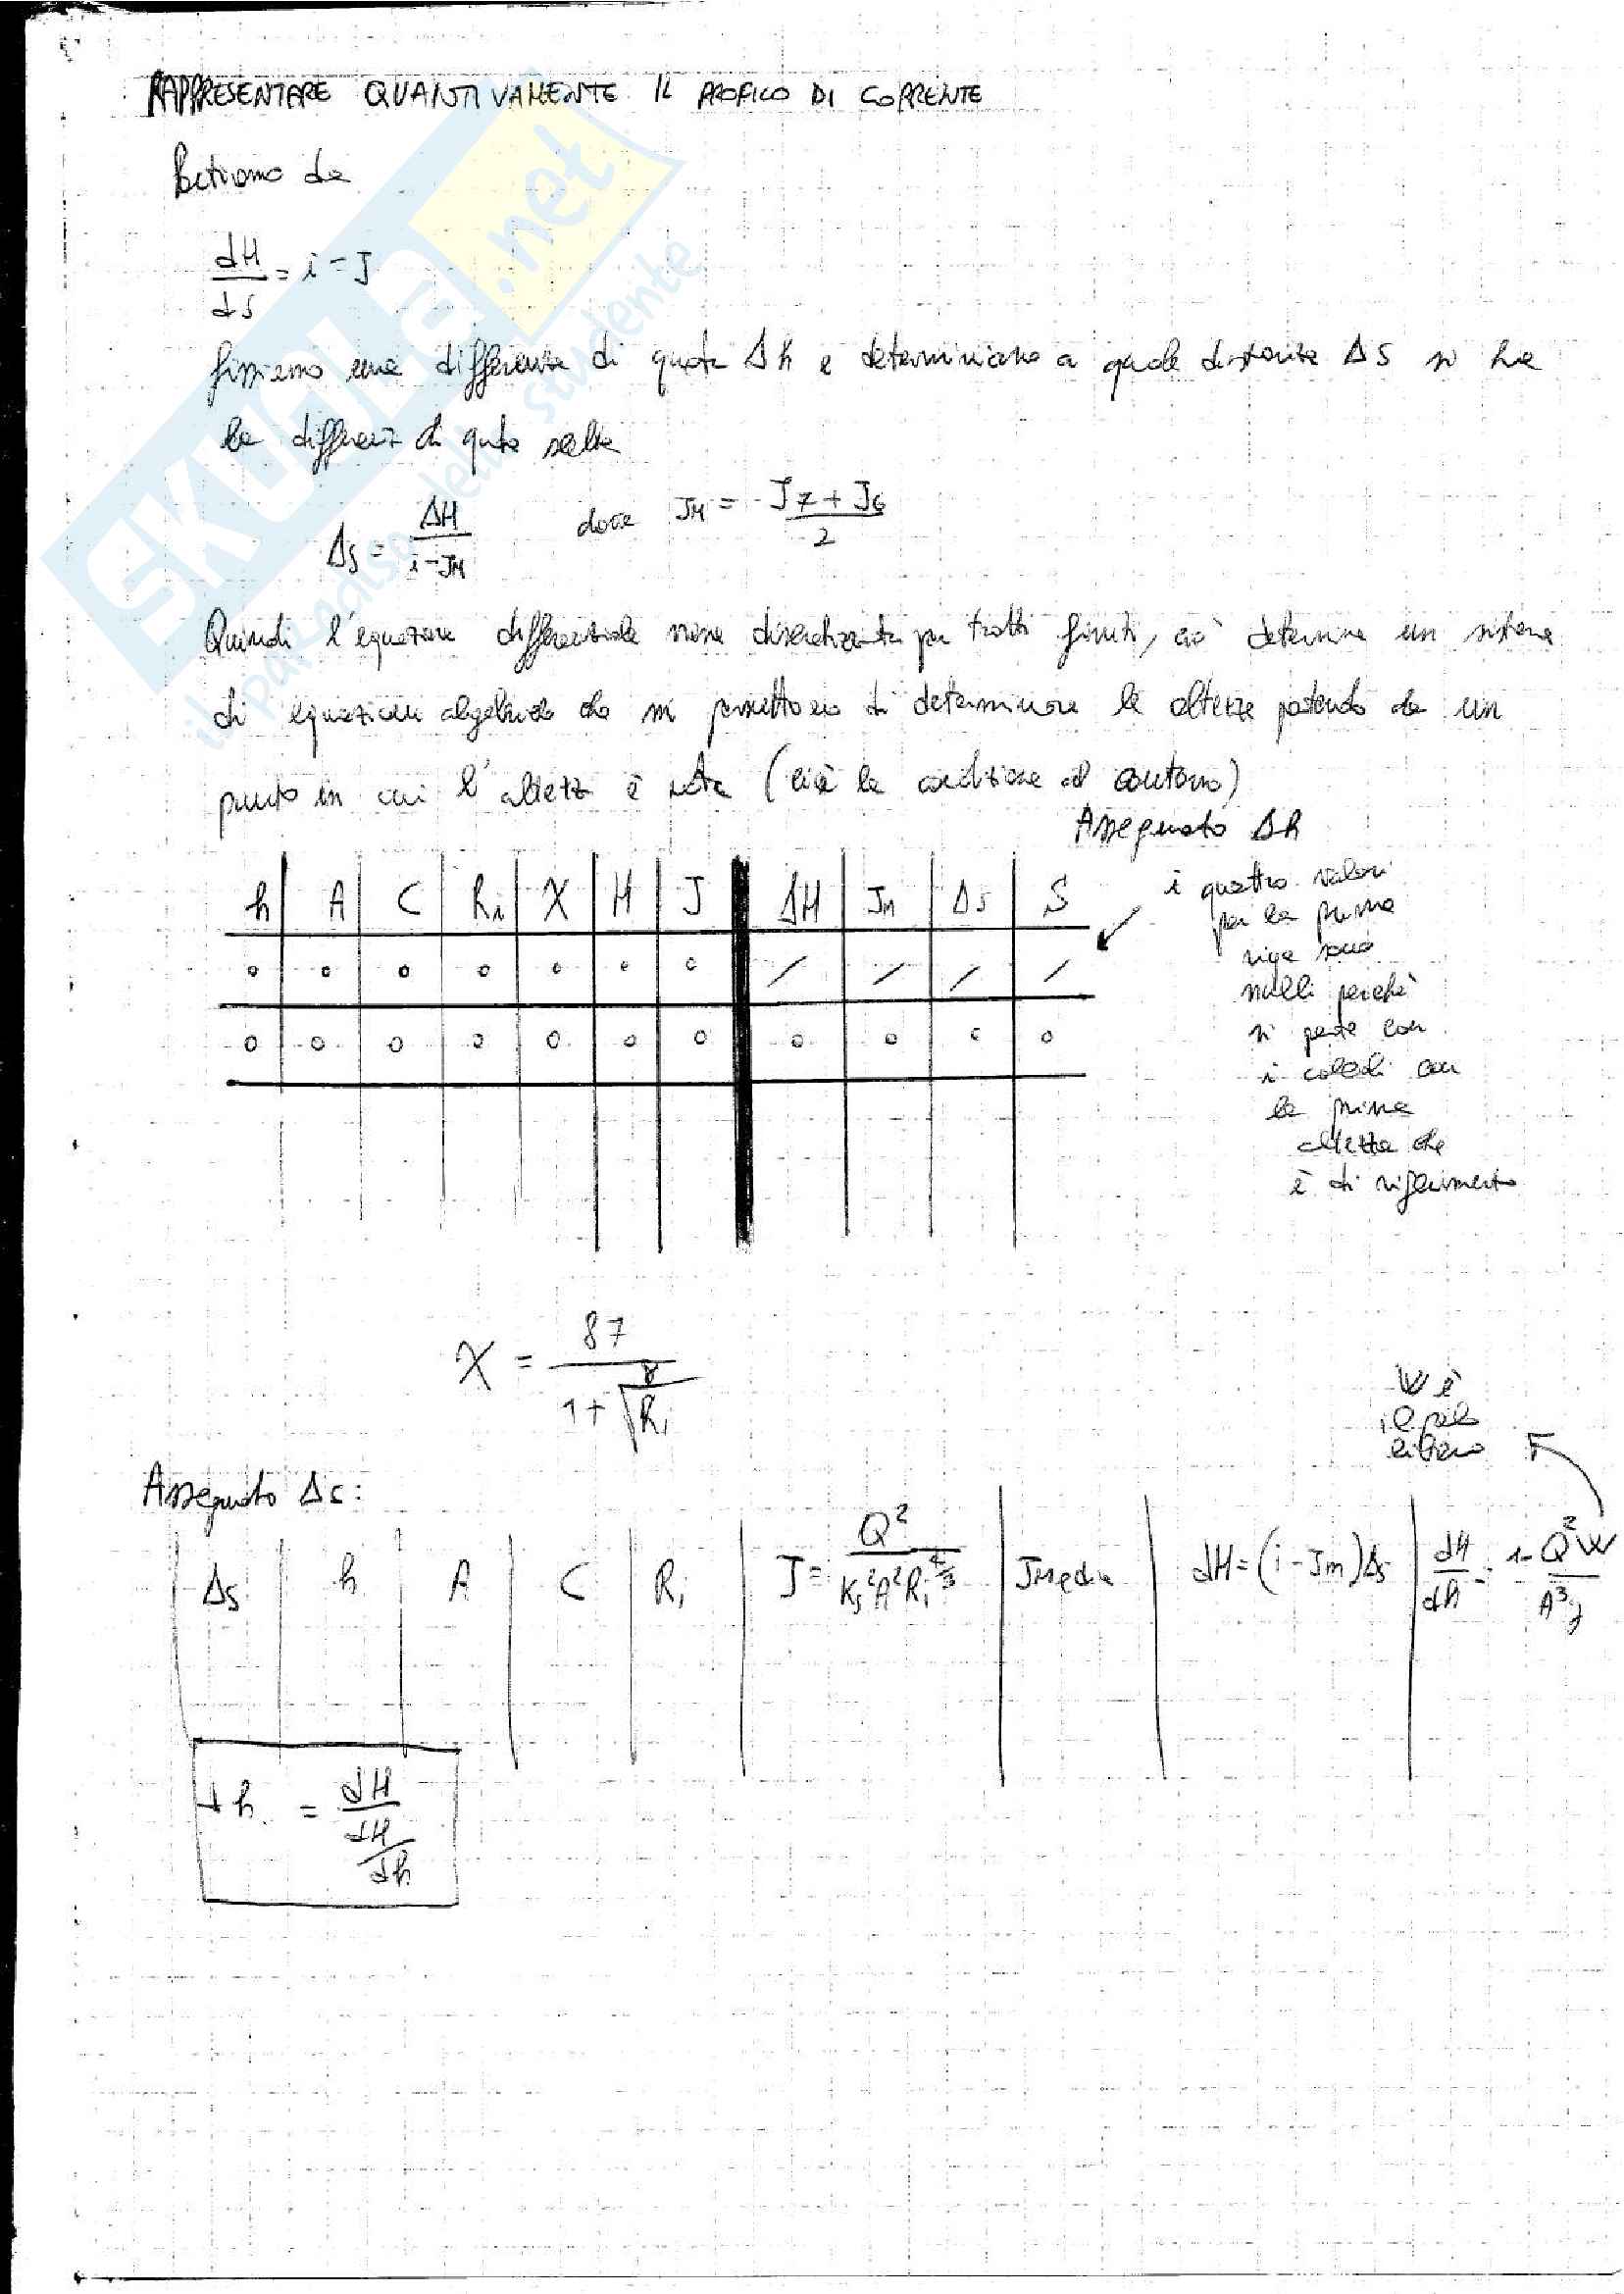 RAPPRESENTARE QUANTIVAMENTE IL PROFILO DI CORRENTE
SKUOLA.net
il paradiso dello studente
dH/dS = i - J
fissiamo una differenza di quota Δh e determiniamo a quale distanza ΔS si ha
la di quota scelta
ΔS = ΔH/(i-JM) dove JM = (J7 + J6)/2
Quindi l'equazione differenziale viene discretizzata per tratti finiti, ciò determina un sistema
di equazioni algebriche che mi permettono di determinare le altezze partendo da un
punto in cui l'altezza è nota (cioè la condizione al contorno)
Assegnato Δh
h A C Ri X H J ΔH JM ΔS S
i quattro valori
per la prima
riga sono
nulli perchè
si parte con
i calcoli con
la prima
altezza che
è di riferimento
χ = 87/(1+ γ/√Ri)
W è
il pelo
libero
Assegnato Δs:
Δs h A C Ri J = Q²/(Ks²A²Ri^4/3) Jmedia dH=(i-Jm)Δs dH/dh = 1- Q²W/A³g
dh = dH/(dH/dh)